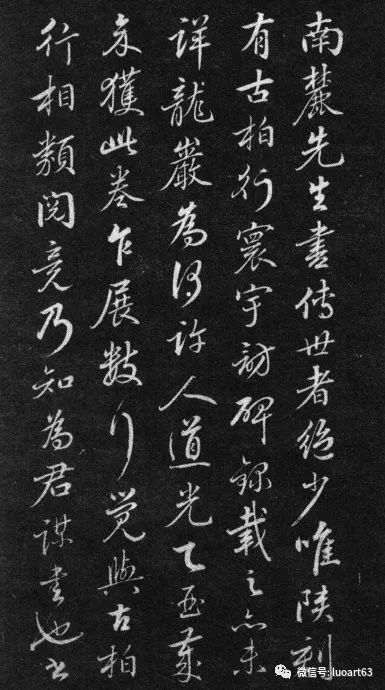 南麓先生書傳世者絕少唯陝刻
有古柏行寰宇訪碑錄載之亦未
詳龍巖為何許人道光乙酉歲
余獲此卷乍展數行覺與古柏
行相類閱竟乃知為君謀書也
微信号: luoart63